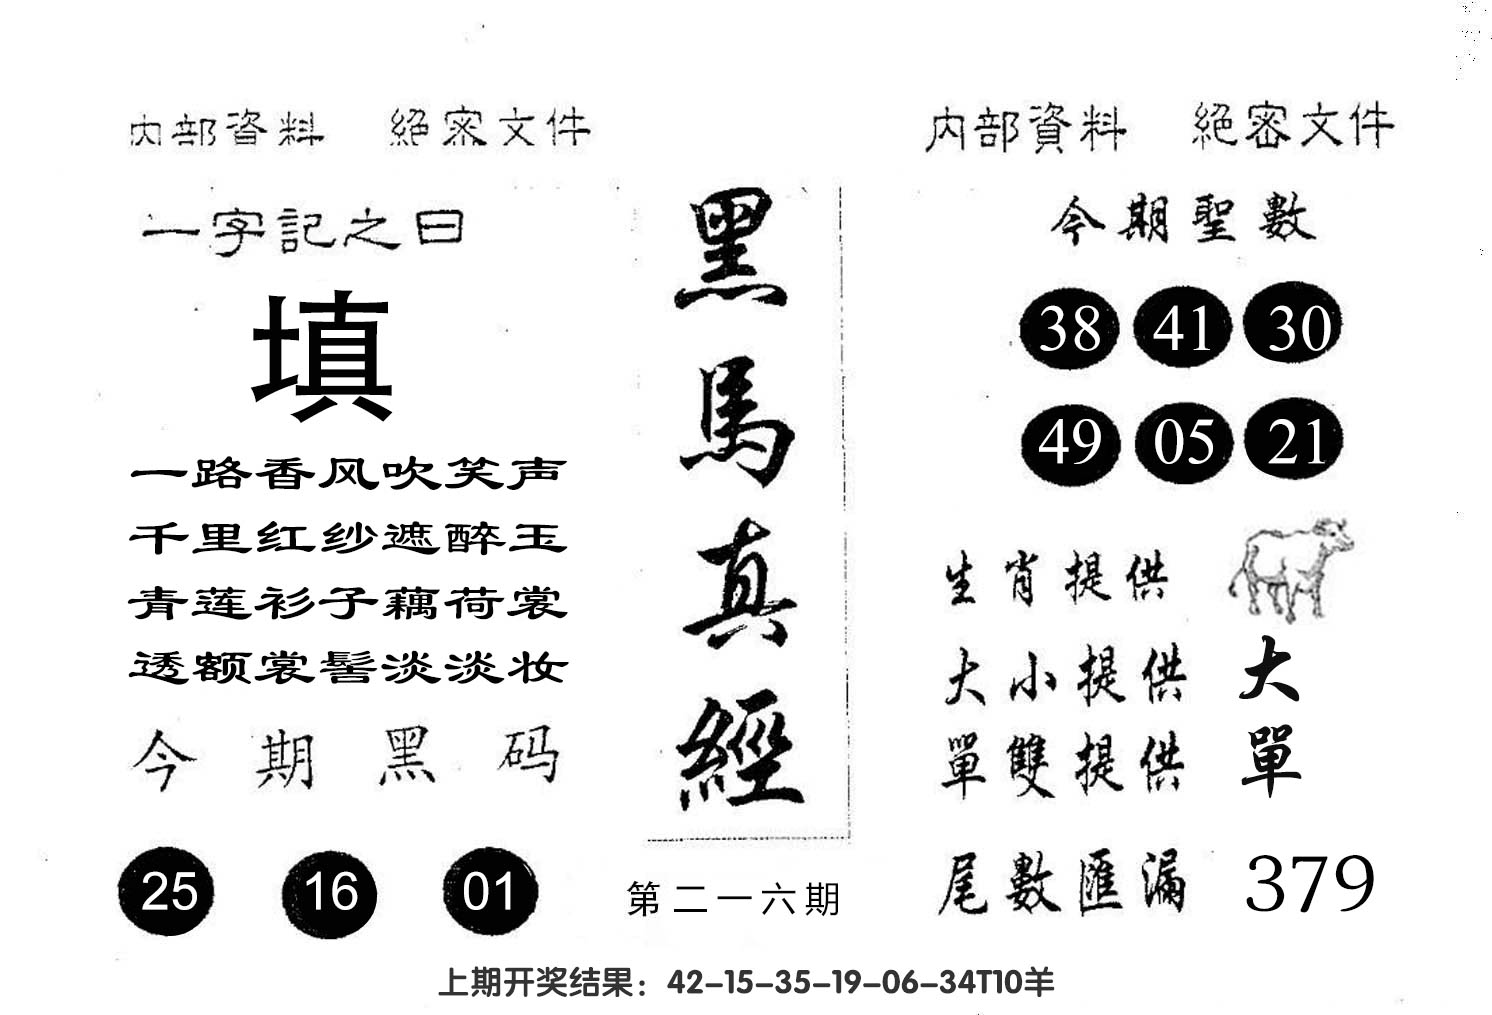 内部資料 絕密文件
一字記之曰
填
一路香风吹笑声
千里红纱遮醉玉
青莲衫子藕荷裳
透额裳髻淡淡妆
今期黑码
25 16 01
黑馬真經
第二一六期
内部資料 絕密文件
今期聖數
38 41 30
49 05 21
生肖提供
大小提供 大
單雙提供 單
尾數匯漏 379
上期开奖结果：42-15-35-19-06-34T10羊